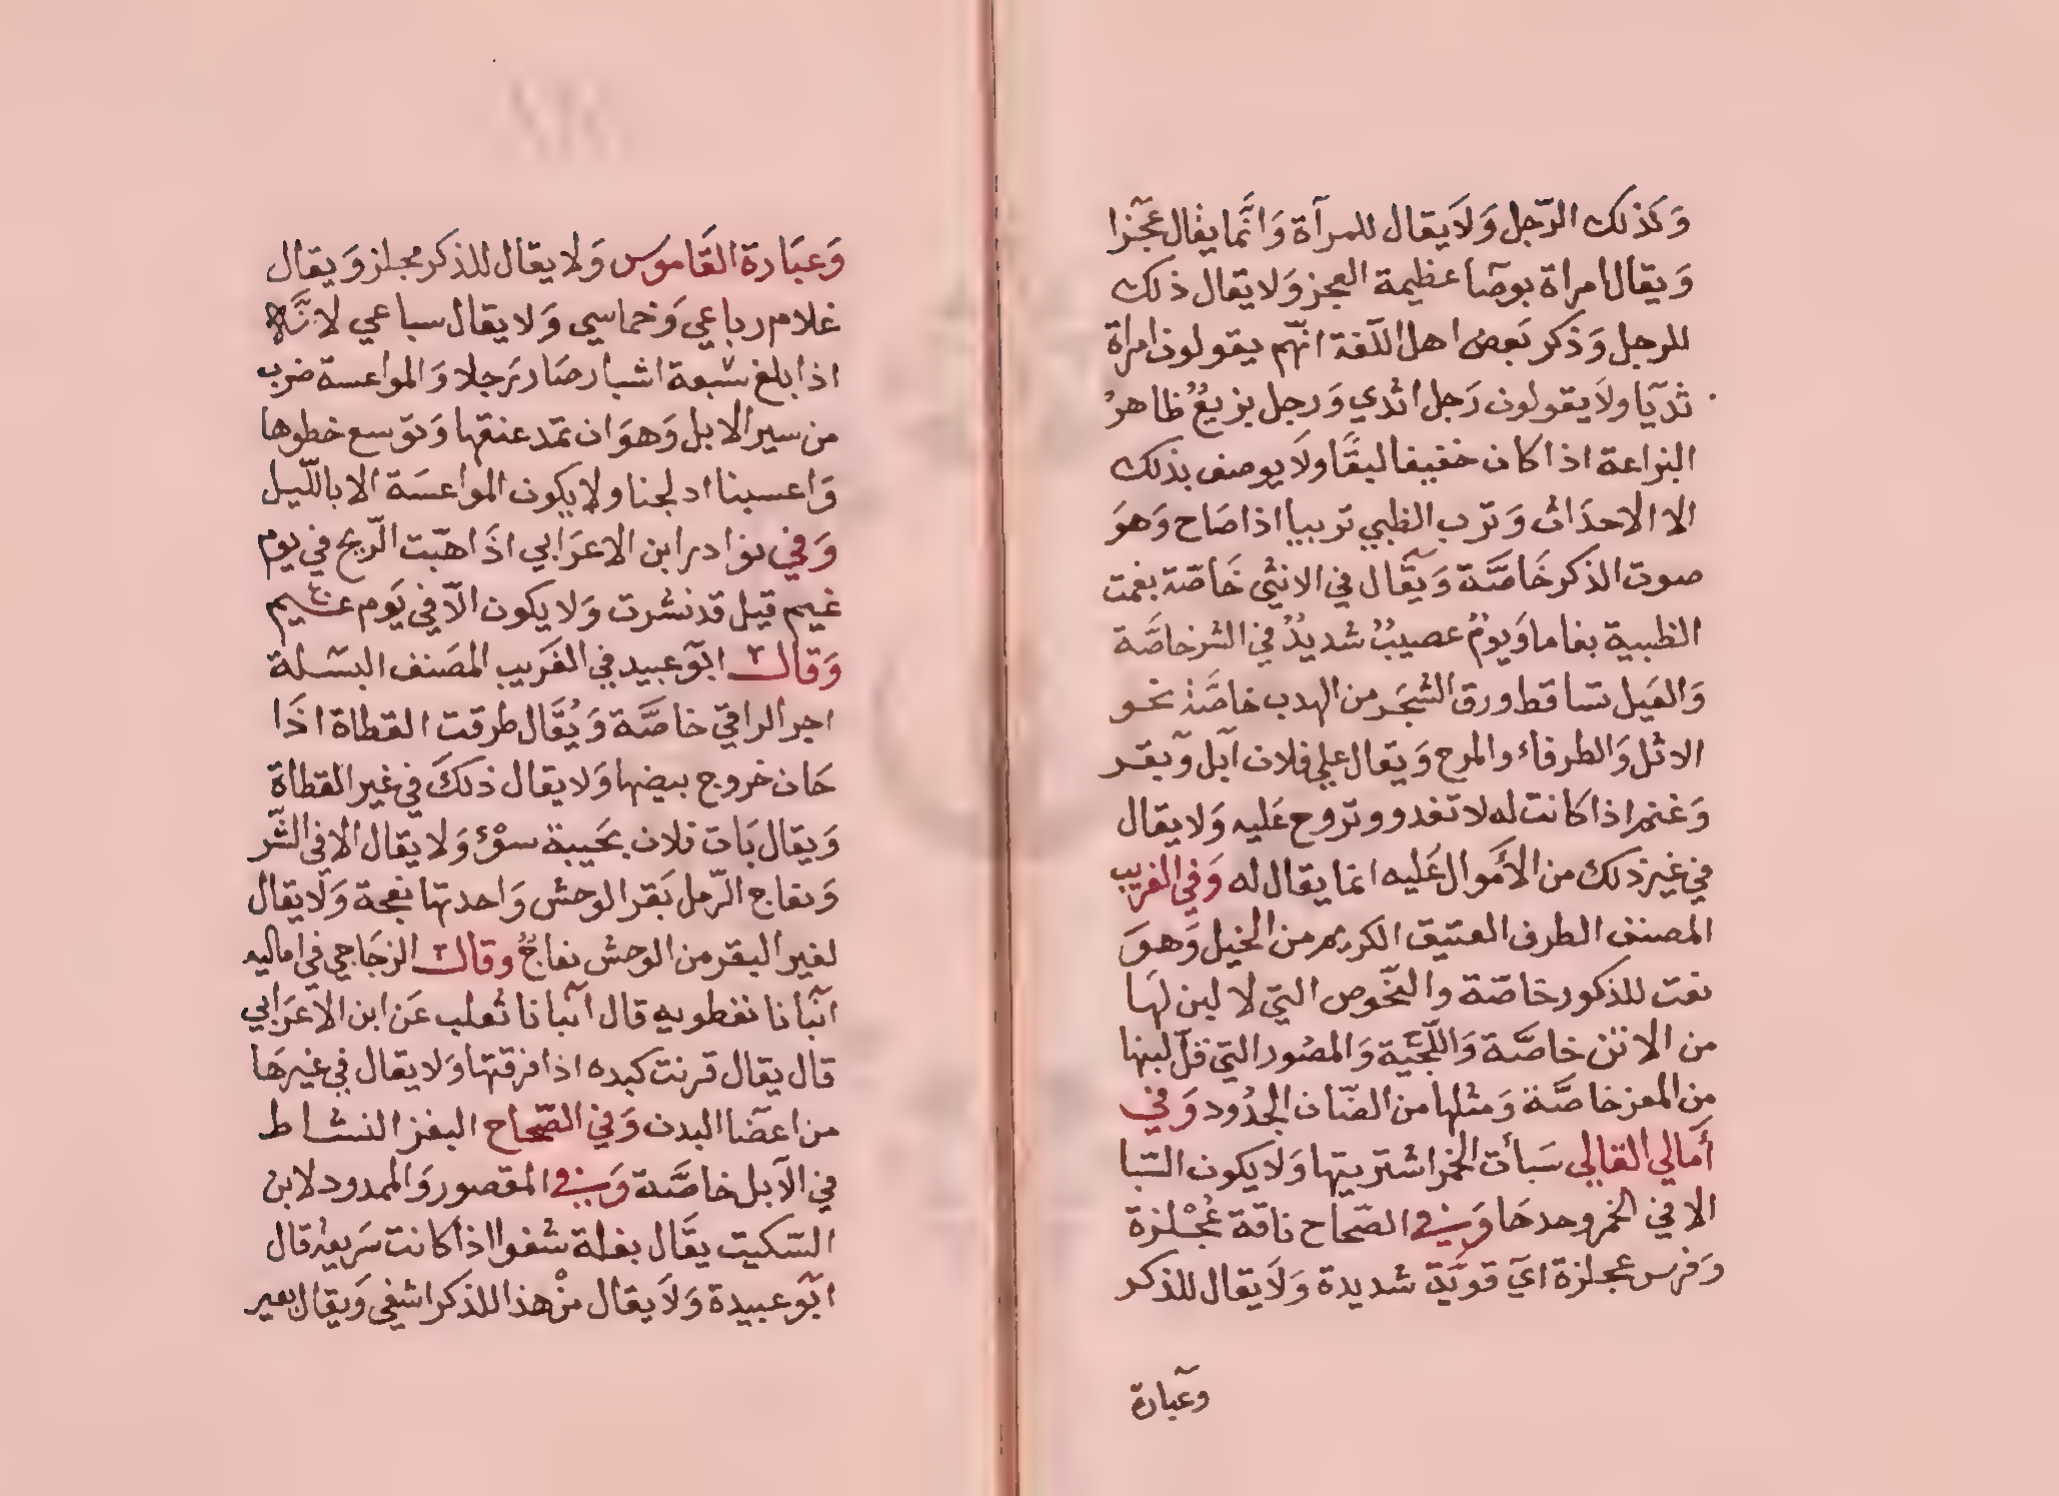 وَكذلك الرّجل وَلَا يقال للمرآة وَانَّما يقال عجٓزا
وَيقال امراة بوصٓا عظيمة العجز وَلا يقال ذلك
للرجل وَذكر بَعض اهل اللّغة انّهم يقولون امراة
ثديٓا ولَا يقولون رَجل اثدي وَرجل بزيعٌ ظاهرُ
البزاعة اذا كان خفيفا لبقًا ولَا يوصف بذلك
الا الاحدَاث وَنزب الظبي نزيبا اذا صَاح وَهوَ
صوت الذكر خَاصَّة وَيقٓال في الانثي خَاصّة بغمت
الظبية بغاما وَيومٌ عصيبٌ شديدٌ في الشر خاصَّة
وَالعَبل تساقط ورق الشجَر من الهدب خاصَّة نحو
الاثل وَالطرفاء والمرخ وَيقال علي فلان آبل وَبقر
وَغنم اذا كانت له لا تغدو وتروح عَليه وَلا يقال
في غير ذلك من الأموَال عَليه انما يقال له وَفي الغريب
المصنف الطرف العتيق الكريم من الخيل وَهوَ
نعت للذكور خاصّة والنّحوص التي لا لبن لهَا
من الاتن خاصَّة وَاللّجْبَة وَالمصُور التي قلّ لبنها
من المعز خاصَّة وَمثلها من الضّان الجدُود وَفي
أمَالي القالي سَبأت الخمر اشتريتها وَلا يكون السّبا
الا في الخمر وحدهَا وَفي الصّحاح ناقة عُجْلزة
وَفرس عجلزة ايَ قويَّة شديدة وَلَا يقال للذكر
وعٓبارة
وَعبَارة القَاموَس وَلا يقال للذكر عجلز وَيقال
غلام رباعي وَخماسي وَلا يقال سباعي لانَّه
اذا بلغ سَبعة اشبار صَار رَجلا وَالمواعسة ضرب
من سير الابل وَهوَ ان تمَد عنقها وَتوَسع خطوها
وَاعسنا ادلجنا ولا يكون المواعسَة الا باللّيل
وَفي نوادر ابن الاعرَابي اذَا هبّت الرّيح في يوم
غيم قيل قد نشرت وَلا يكون الّا في يَوم غيم
وَقال ابَو عبيد في الغَريب المصَنف البسٓلة
اجر الراقيَ خاصَّة وَيُقَال طرقت القطاة اذَا
حَان خروج بيضها وَلا يقال ذلكَ في غير القطاة
وَيقال بَات فلان بحَيبة سوْء وَلا يقال الا في الشّر
وَنعاج الرّمل بَقر الوحش وَاحدتها نعجة وَلَا يقال
لغير البقر من الوحش نعاجٌ وقال الزجَاجي في اماليه
انبَأنا نفطويه قال انبَأنا ثعلب عَن ابن الاعرَابي
قال يقال قرنت كبده اذا فرقتها وَلا يقال في غيرهَا
من اعضٓا البدن وَفي الصّحاح البغز النشاط
في الابل خاصَّة وَفي المقصور وَالممدود لابن
السّكيت يقَال بغلة سَفوا اذا كانت سَريعة قال
ابَو عبيدة وَلَا يقال منْ هذا للذكر اسفي وَيقال بعير